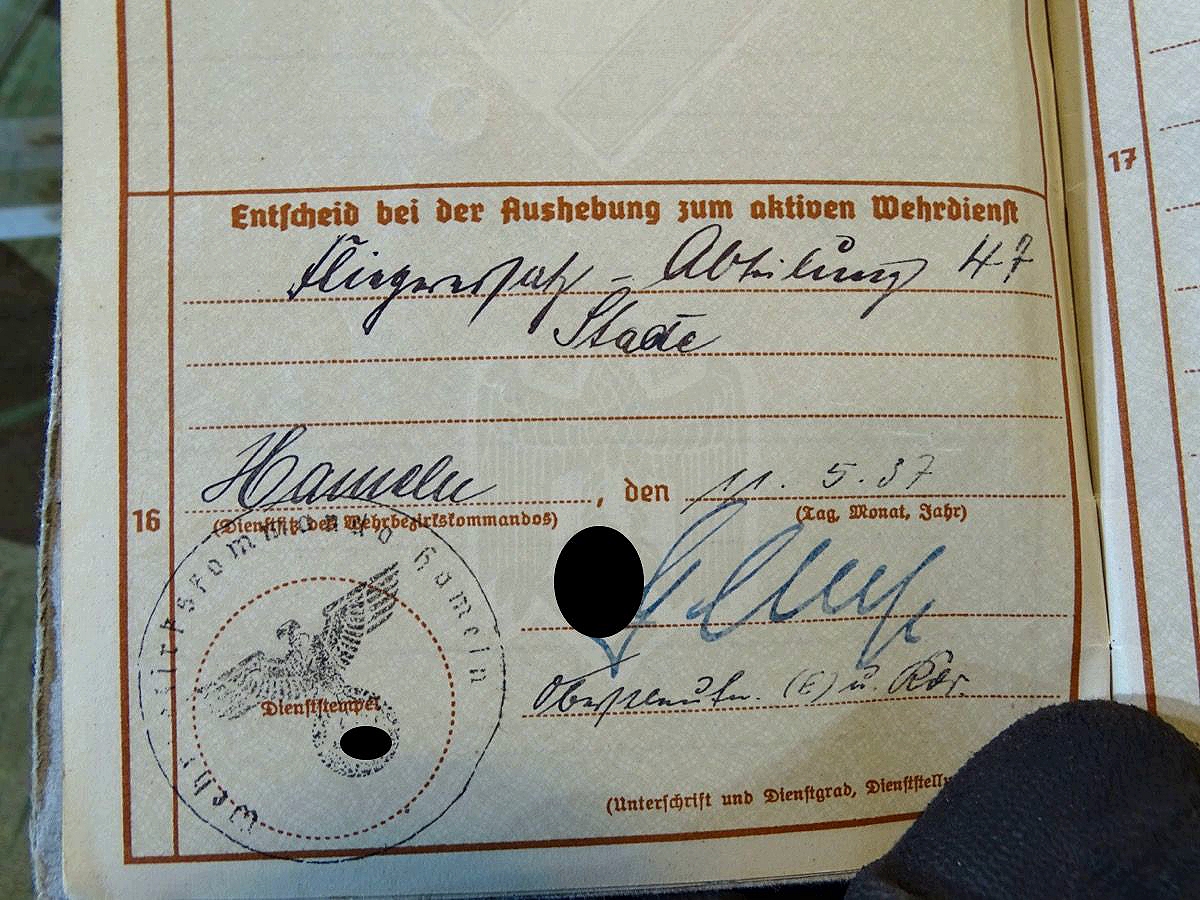 Entscheid bei der Aushebung zum aktiven Wehrdienst
Fliegerersatz-Abteilung 47
Stade
Hameln, den 11. 5. 37
16
(Dienstsitz des Wehrbezirkskommandos)
(Tag, Monat, Jahr)
Wehrbezirkskommando Hameln
Dienststempel
Oberstleutn. (E) u. Kdr.
(Unterschrift und Dienstgrad, Dienststellu
17